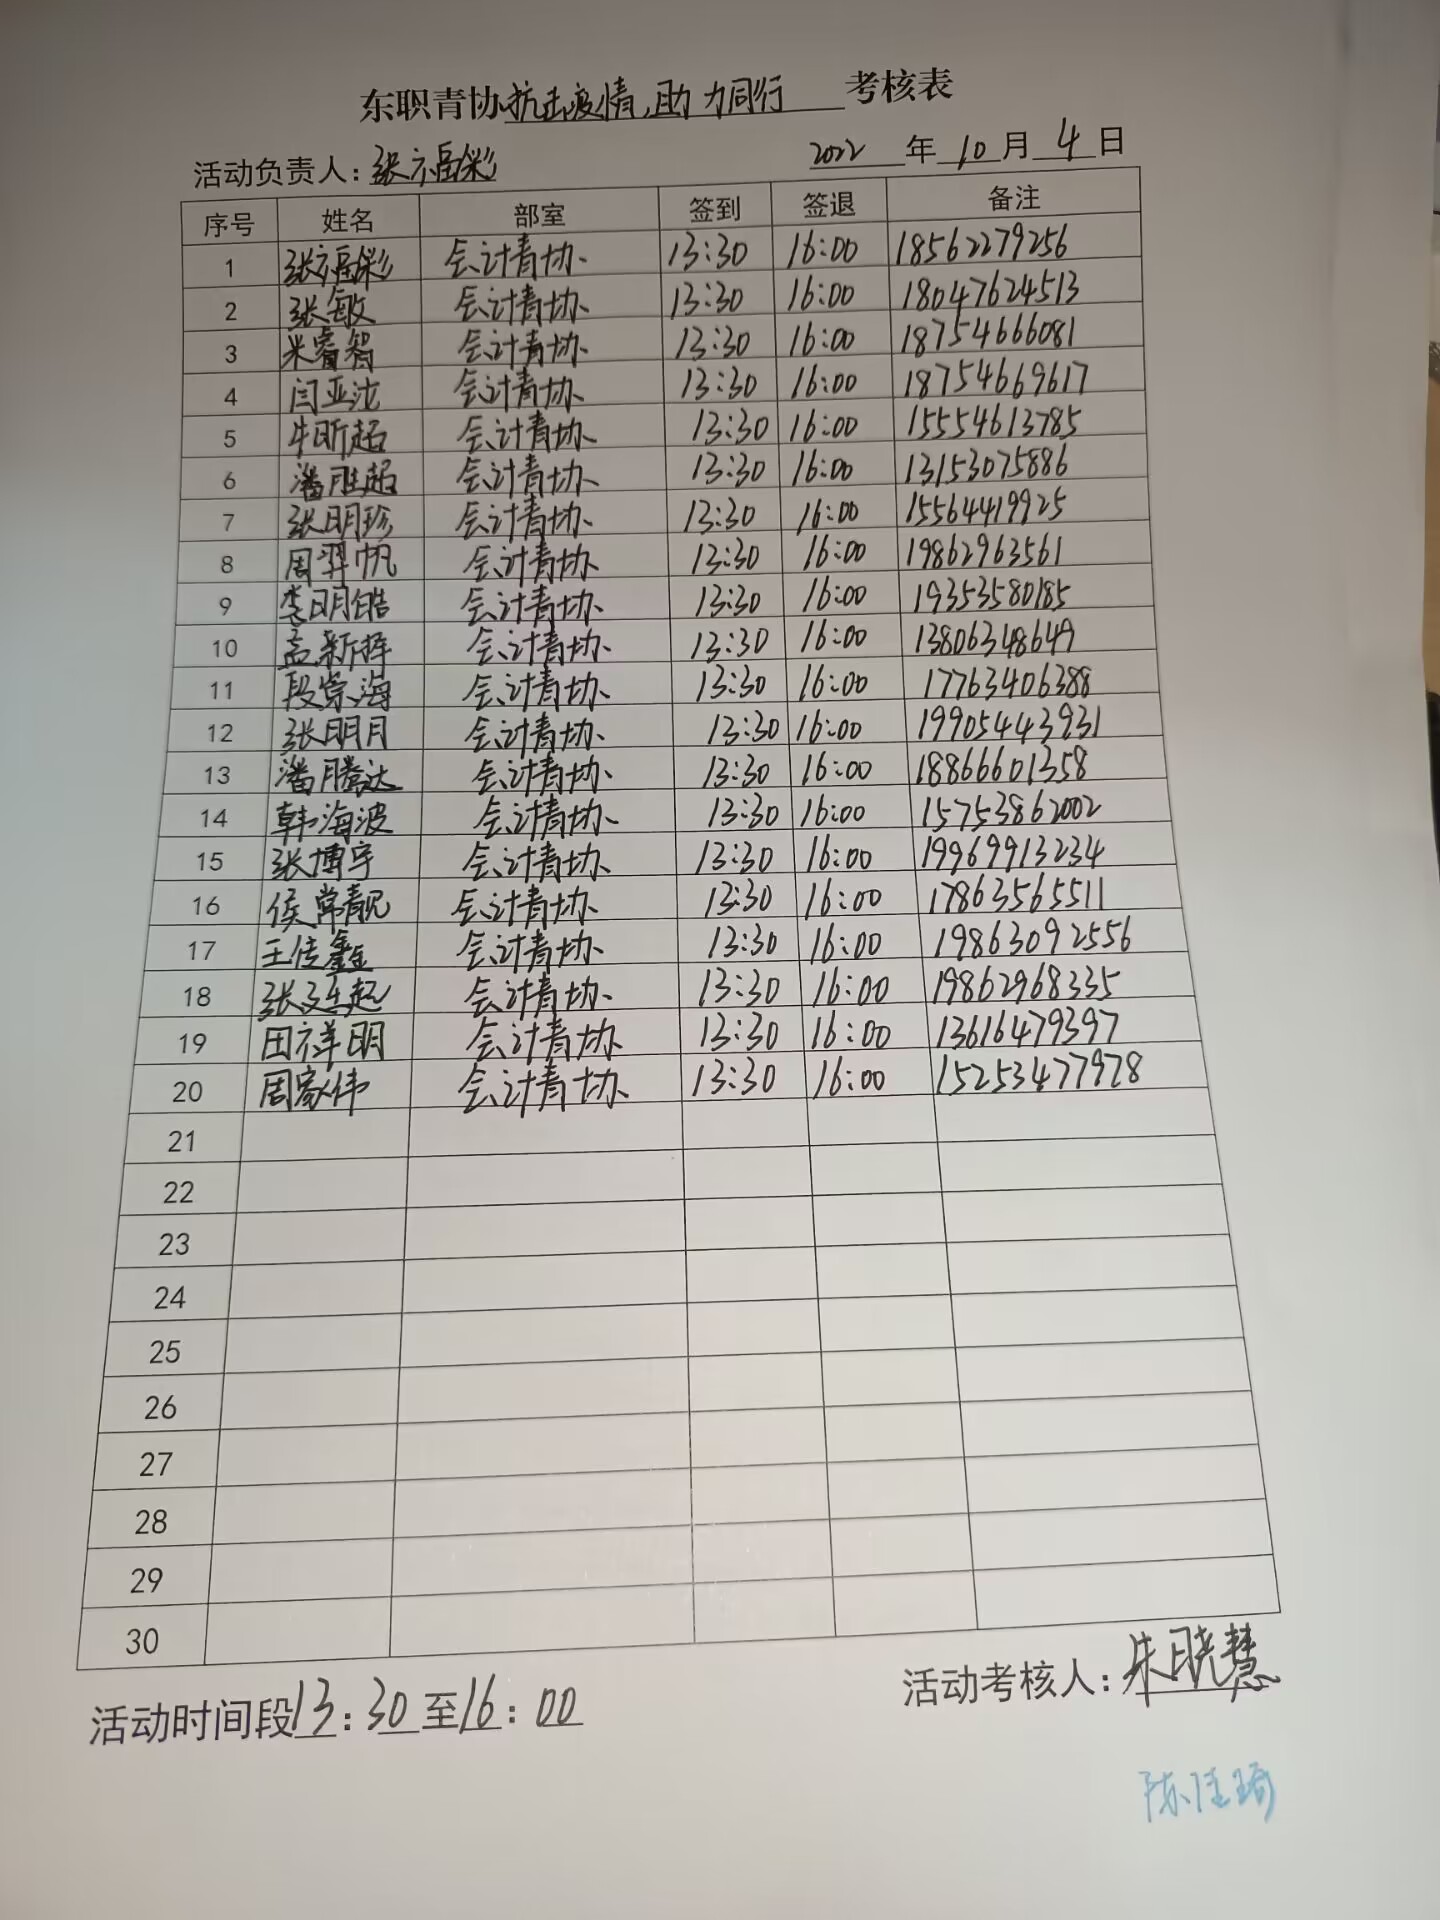 东职青协抗击疫情,助力同行 考核表
活动负责人:张福彩 2022 年 10 月 4 日
序号 姓名 部室 签到 签退 备注
1 张福彩 会计青协 13:30 16:00 18562279256
2 张敏 会计青协 13:30 16:00 18047624513
3 米睿智 会计青协 13:30 16:00 18754666081
4 闫亚沱 会计青协 13:30 16:00 18754669617
5 牛昕超 会计青协 13:30 16:00 15554613785
6 潘胜超 会计青协 13:30 16:00 13153075886
7 张明珍 会计青协 13:30 16:00 15564419925
8 周羿帆 会计青协 13:30 16:00 19862963561
9 李明皓 会计青协 13:30 16:00 19353580185
10 孟新择 会计青协 13:30 16:00 13806348649
11 段崇海 会计青协 13:30 16:00 17763406388
12 张明月 会计青协 13:30 16:00 19905443931
13 潘腾达 会计青协 13:30 16:00 18866601358
14 韩海波 会计青协 13:30 16:00 15753862002
15 张博宇 会计青协 13:30 16:00 19969913234
16 侯常靓 会计青协 13:30 16:00 17863565511
17 王传鑫 会计青协 13:30 16:00 19863092556
18 会计青协 13:30 16:00 19862968335
19 田祥明 会计青协 13:30 16:00 13616479397
20 周家伟 会计青协 13:30 16:00 15253477978
21
22
23
24
25
26
27
28
29
30
活动考核人:朱晓慧
活动时间段13:30至16:00
陈佳琦